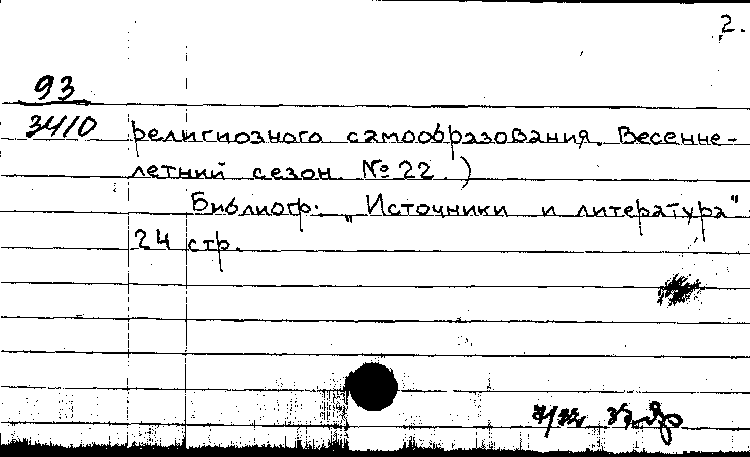 2.
93
3410
религиозного самообразования. Весенне-
летний сезон. № 22.)
Библиогр: „Источники и литература"
24 стр.